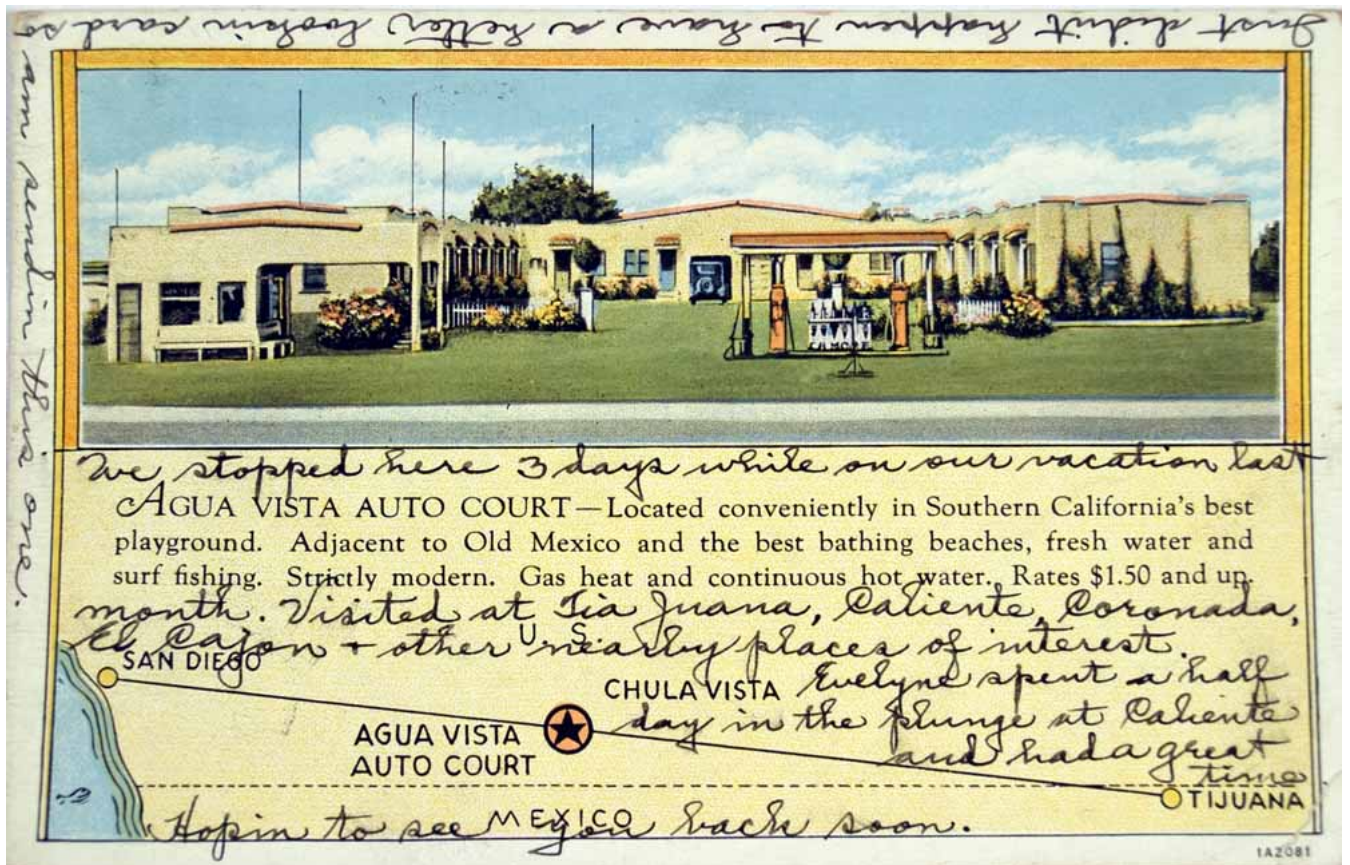 Just didn't happen to have a better lookin card so
am sendin this one.
We stopped here 3 days while on our vacation last
AGUA VISTA AUTO COURT—Located conveniently in Southern California's best
playground. Adjacent to Old Mexico and the best bathing beaches, fresh water and
surf fishing. Strictly modern. Gas heat and continuous hot water. Rates $1.50 and up.
month. Visited at Tia Juana, Caliente, Coronada,
El Cajon + other nearby places of interest.
U. S.
SAN DIEGO
CHULA VISTA
Evelyne spent a half
day in the plunge at Caliente
and had a great
time
AGUA VISTA
AUTO COURT
TIJUANA
MEXICO
Hopin to see you back soon.
1A2081